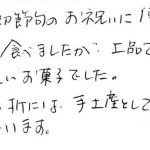 初節句のお祝いに
食べましたが、上品で
しいお菓子でした。
折には、手土産として
います。